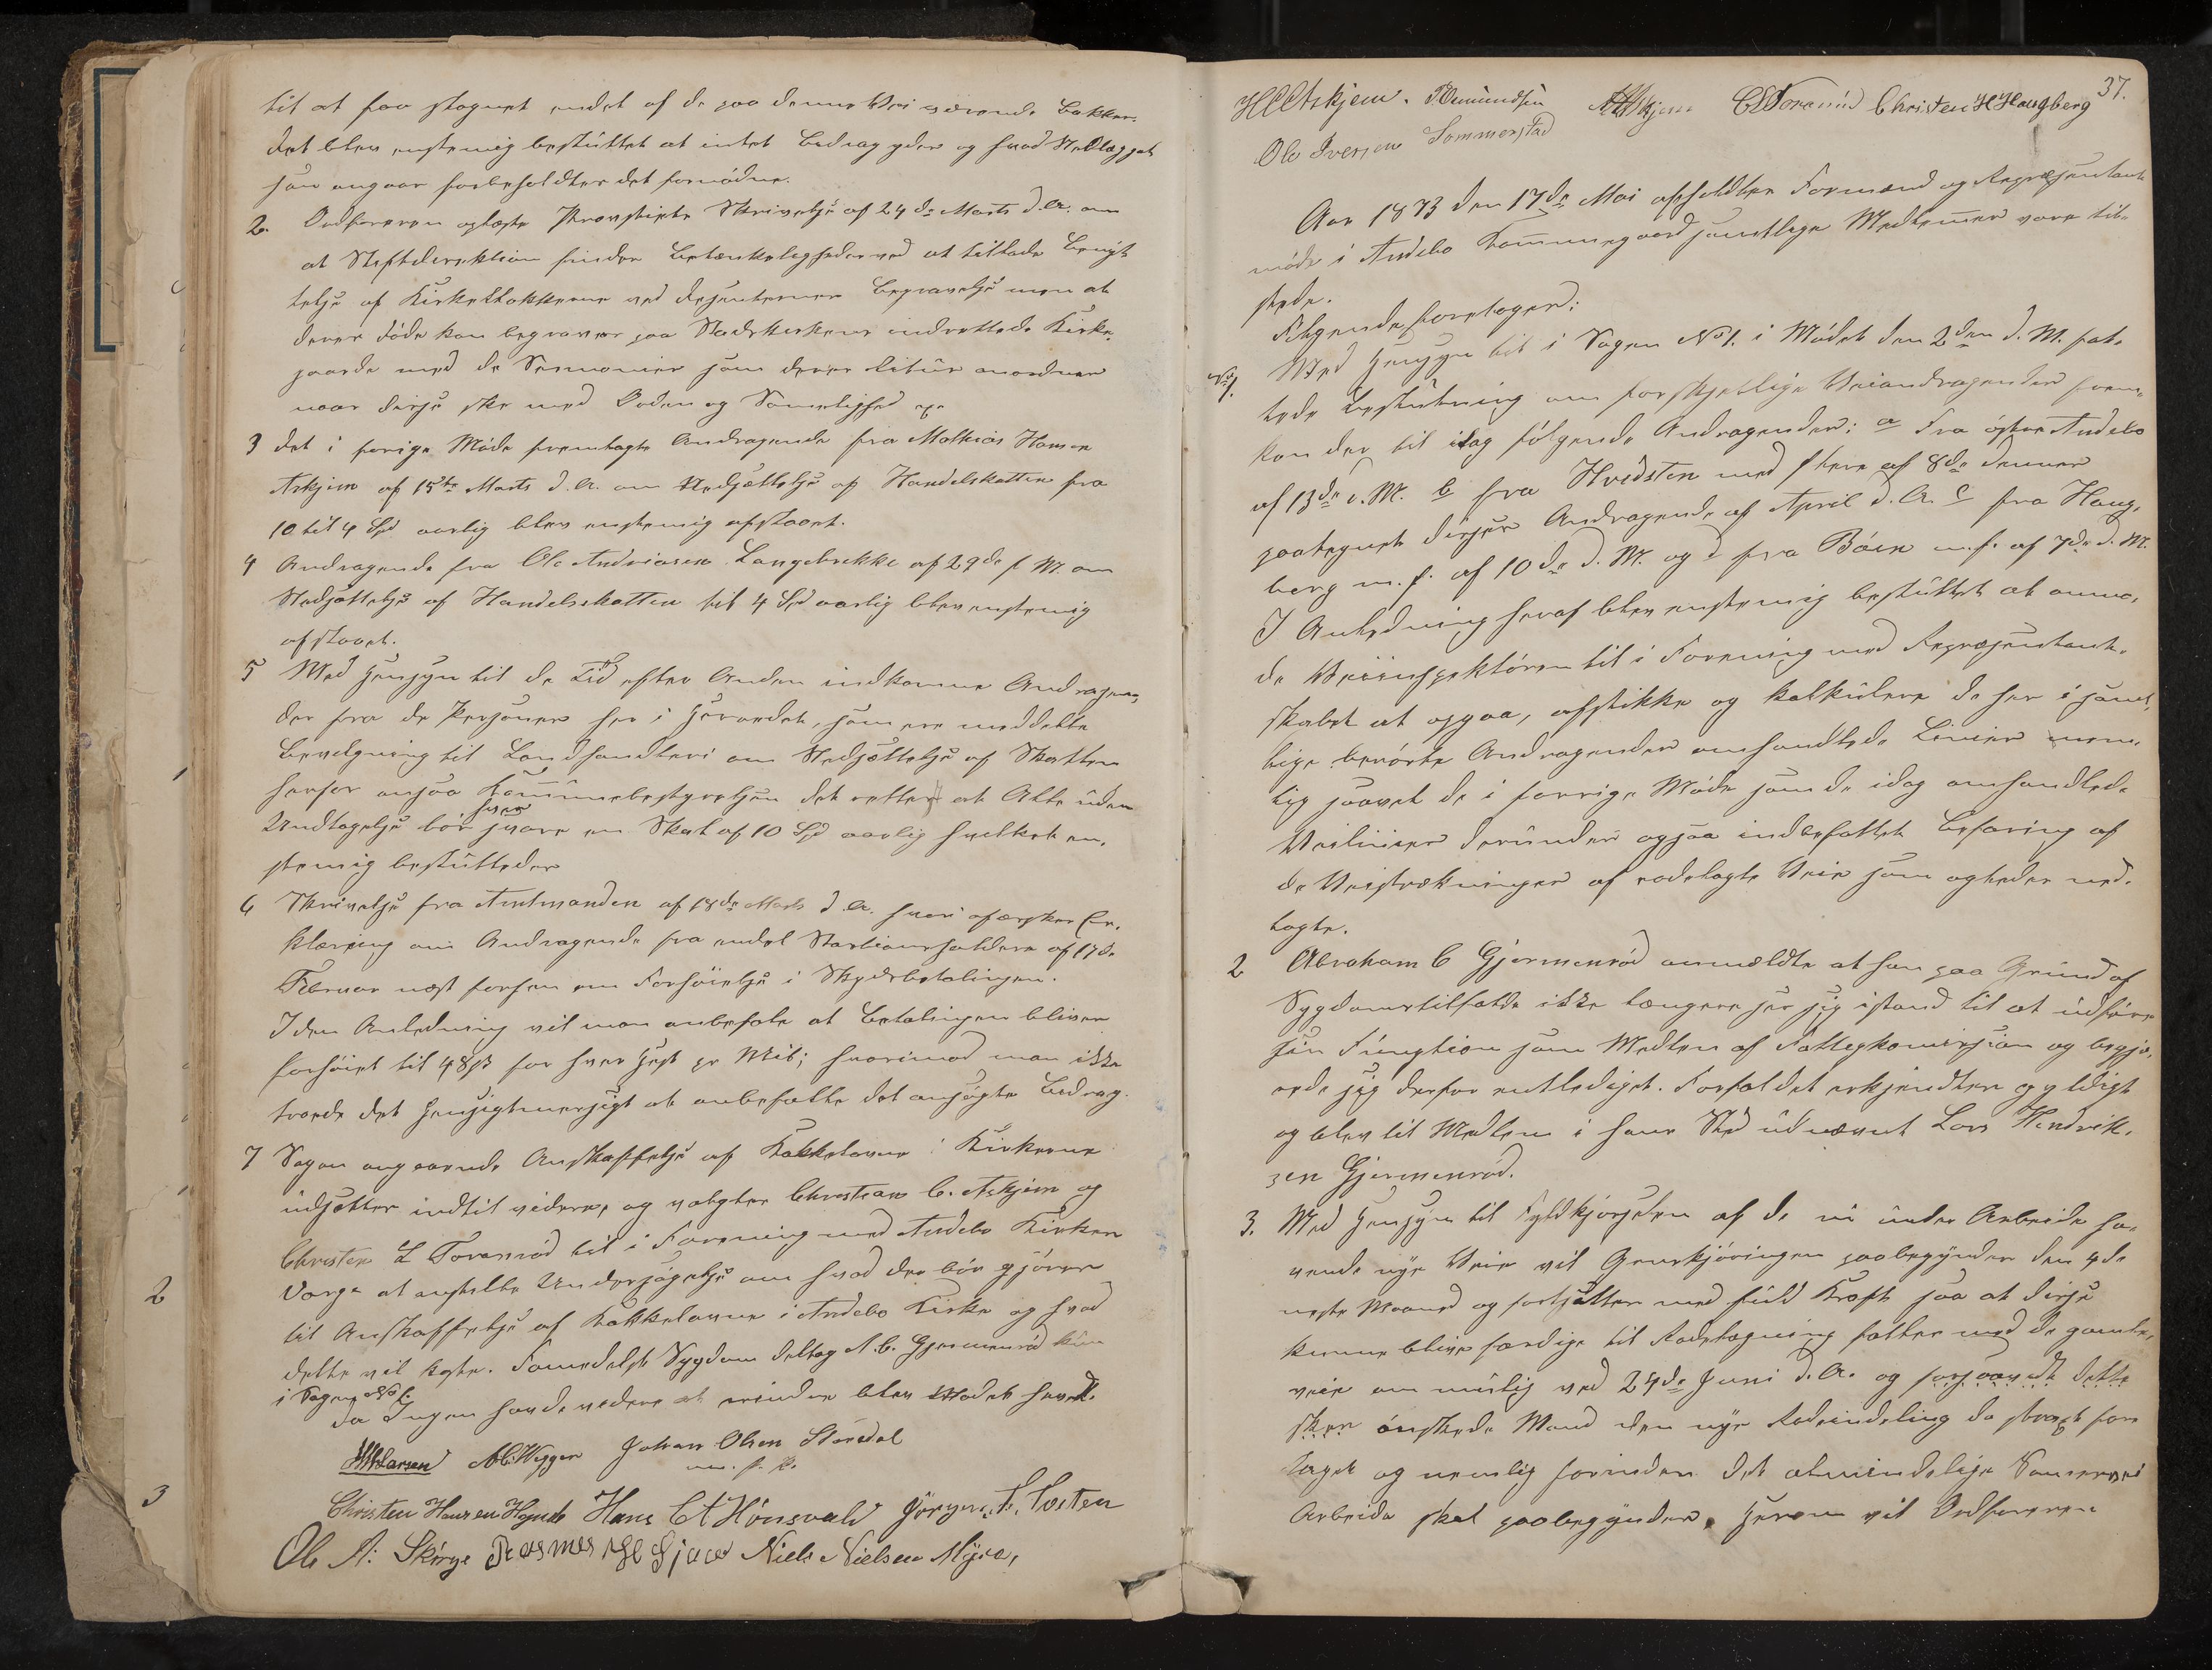 til at faa stagnet endel af de paa denne Vei værende Bakker.
det blev enstemig besluttet at intet Bidrag ydes og hvad Nedlægget
san angaar forbeholdtes det fornødne.
2. Ordføreren oplæste Provstiets Skrivelse af 24de Marts d.A. om
at Stiftdirektion finder Betænkeligheder ved at tillade Benyt
telse af Kirkeklokkerne ved Dissenternes Begravelse men at
deres døde kan begraves paa Statskirkens indviede Kirke
gaarde med de Seremonier som deres Ritus anordner
naar disse ske med Orden og Sømelighed
3 det i forige Møde fremlagte Andragende fra Mathias Hansen
Askjem af 15de Marts d.A. om Nedsættelse af Handelskatten fra
10 til 4 Spd aarlig blev enstemig afslaaet.
4 Andragende fra Ole Andriasen Langebrekke af 29de f. M. om
Nedsættelse af Handelsskatten til 4 Spd aarlig blev enstemig
afslaaet.
5 Med Hensyn til de Tid efter Anden indkomne Andragen
der fra de Personer her i Herredet, som ere meddelte
Bevilgning til Landhandleri om Nedsættelse af Skatten
herfor ansaa Kommunebestyrelsen det rettest at Alle uden
Undtagelse bør hver svare en Skat af 10 Spd aarlig hvilket en,
stemig besluttedes
6 Skrivelse fra Amtmanden af 18de Marts d.A. hvori afæsker Er,
klæring om Andragende fra endel Stationsholdere af 17de
Februar næst forhen om Forhøielse i Skydsbetalingen.
I den Anledning vil man anbefale at Betalingen bliver
forhøiet til 48 ß for hver Hest pr Mil; hvorimod man ikke
troede det Hensigtmessigt at anbefalle det ansøgte Bidrag.
7 Sagen angaaende Anskaffelse af Kakkelovne i Kirkerne
udsættes indtil videre, og valgtes Christian C. Askjem og
Christen L Toranrød til i Forening med Andebo Kirkes
Verge at anstille Undersøgelse om hvad der bør gjøres
til Anskaffelse af Kakkelovne i Andebo Kirke og hvad
dette vil koste. Formedelst Sygdom deltog A. C. Gjermenrød kun
i Sagen No 1.
da Ingen havde videre at erindre blev Mødet hævet.
HMLarsen AC.Wegger Johan Olsen Støredal
m. f. P.
Christen Hansen Hynne Hans CA Hønsvald Jørgen. F. Tosten
Ole A: Skirge Rasmus Niels Nielsen Myra,
2
3
37.
HCAskjem. Amundsen Askjem CLToranrød Christen H Haugberg
Ole Iversen Sommerstad
Aar 1873 den 17de Mai afholdtes Formænd og Repræsentant
møde i Andebo Kommunegaard samtlige Medlemer vare til,
stede.
Følgende foretoges:
No 1. Med Hensyn til i Sagen No 1. i Mødet den 2den d. M. fat,
tede Beslutning om forskjellige Veiandragender frem,
kom der til idag følgende Andragender: a Fra østre Andebo
af 13de d. M. b fra Hvidsten med flere af 8de denne
paategnet disses Andragende af April d.A. c fra Haug,
berg m.f. af 10de d. M. og d fra Bøen m.f. af 7de d. M.
I Anledning heraf blev enstemig besluttet at anmo,
de Veiinspektøren til i Forening med Repræsentant,
skabet at opgaa, afstikke og kalkulere de her i samt,
lige berørte Andragender omhandlede Linier nem,
lig saavel de i forrige Møde som de idag omhandlede
Veilinier derunder ogsaa indbefattet Befaring af
de Veistrækninger af rodelagte Veie som agtedes ned,
lagte.
2 Abraham C Gjermenrød anmeldte at han paa Grund af
Sygdomstilfælde ikke længere ser sig istand til at udføre
sin Fungtion som Medlem af Fattigkomission og begjæ,
rede sig derfor entlediget. Forfaldet erkjendtes gyldigt
og blev til Medlem i hans Sted udnævnt Lars Hendrik,
sen Gjermenrød.
3. Med Hensyn til Fyldkjørselen af de nu under Arbeide ha,
vende nye Veie vil Gruskjøringen paabegyndes den 4de
neste Maaned og fortsættes med fuld Kraft saa at disse
kunne blive færdige til Rodelægning fælles med de gamle
veie om mulig ved 24de Juni d.A. og forsaavidt dette
skeer ønskede Mand den nye Rodeindeling da strax fore
taget og nemlig forinden det almindelige Sommervei
Arbeide skal paabegyndes, Herom vil Ordføreren